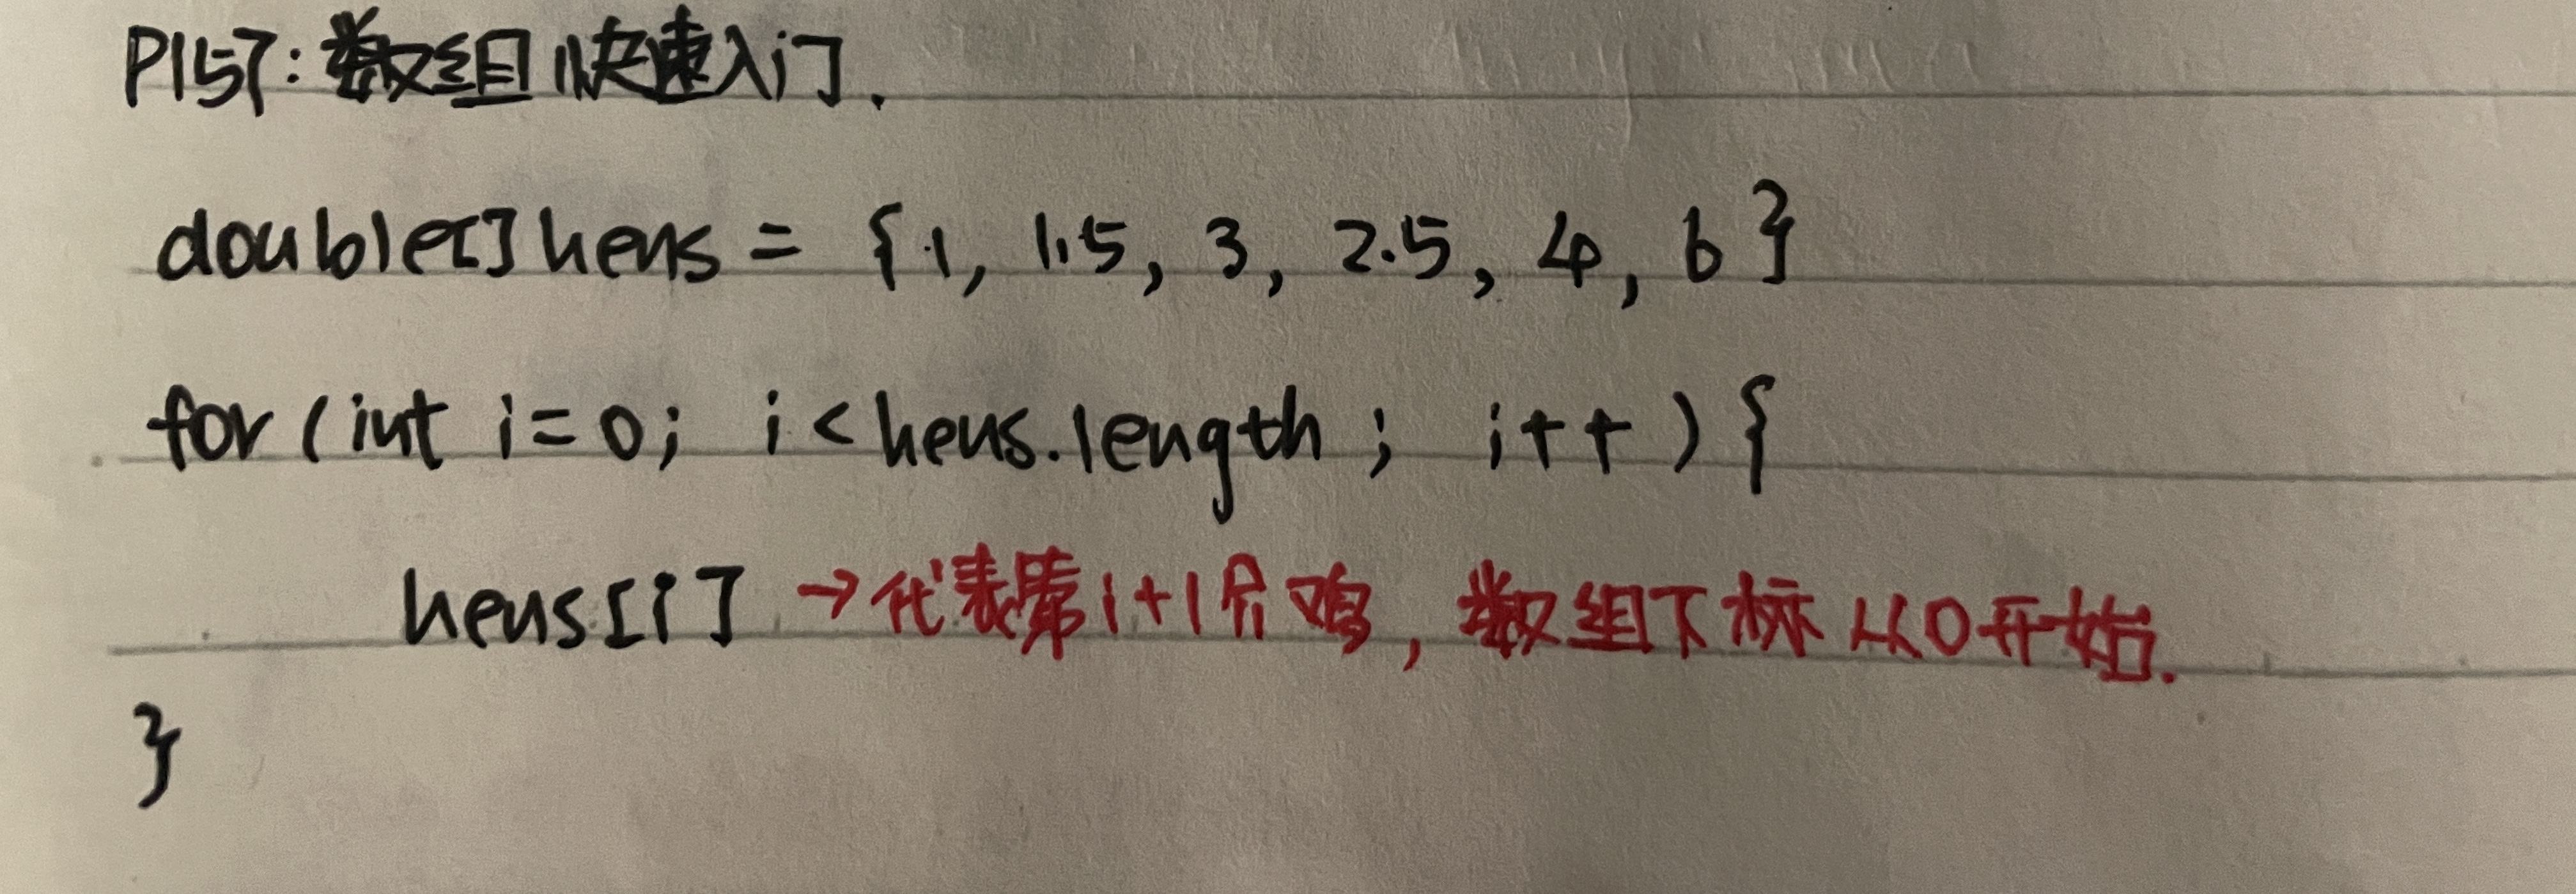 P157:数组快速入门.
double[] hens = {1, 1.5, 3, 2.5, 4, 6}
for (int i=0; i<hens.length; i++){
hens[i] →代表第i+1个鸡,数组下标从0开始.
}